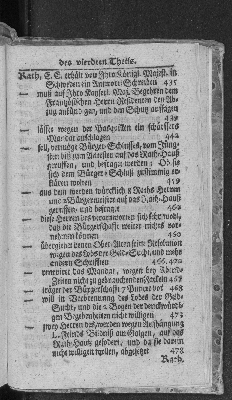 des vierdten Theils.
Rath, E. E. erhält von Ihro Königl. Majest. in
Schweden ein Antwort-Schreiben 435
— muß auf Ihro Kayserl. Maj. Begehren dem
Frantzösischen Herrn Residenten den Ab-
zug ankündigen, und den Schutz aufsagen
439
— lässet wegen der Pasquillen ein schärffers
Mandat anschlagen 442
— soll, vermöge Bürger-Schlusses, vom Jüng-
sten biß zum Aeltesten auf das Rath-Hauß
geruffen, und befraget werden, Ob sie
sich dem Bürger-Schluß gestimmig er-
klären wollen 459
— aus dem werden würcklich 8 Raths Herren
und 2 Bürgermeister auf das Rath-Hauß
gerissen, und befraget 460
— diese Herren des verantworten sich sehr wohl,
daß die Bürgerschafft weiter nichts vor-
nehmen können 460
— übergiebet denen Ober-Alten seine Resolution
wegen des Lobes der Geld-Sucht, und mehr
anderm Schrifften 466. 472
— erneuret das Mandat, wegen bey Abends
Zeiten nicht zu gebrauchenden Fackeln 467
— träget der Bürgerschafft 7 Puncte vor 468
— will in Verbrennung des Lobes der Geld-
Sucht, und die 2 Bogen der denckwürdi-
gen Begebenheiten nicht willigen 473
— zwey Herren des, werden wegen Anhängung
L. Friends Bildniß am Galgen, auf das
Rath-Hauß gefodert, und da sie darein
nicht willigen wollen, abgesetzet 478
Rath,